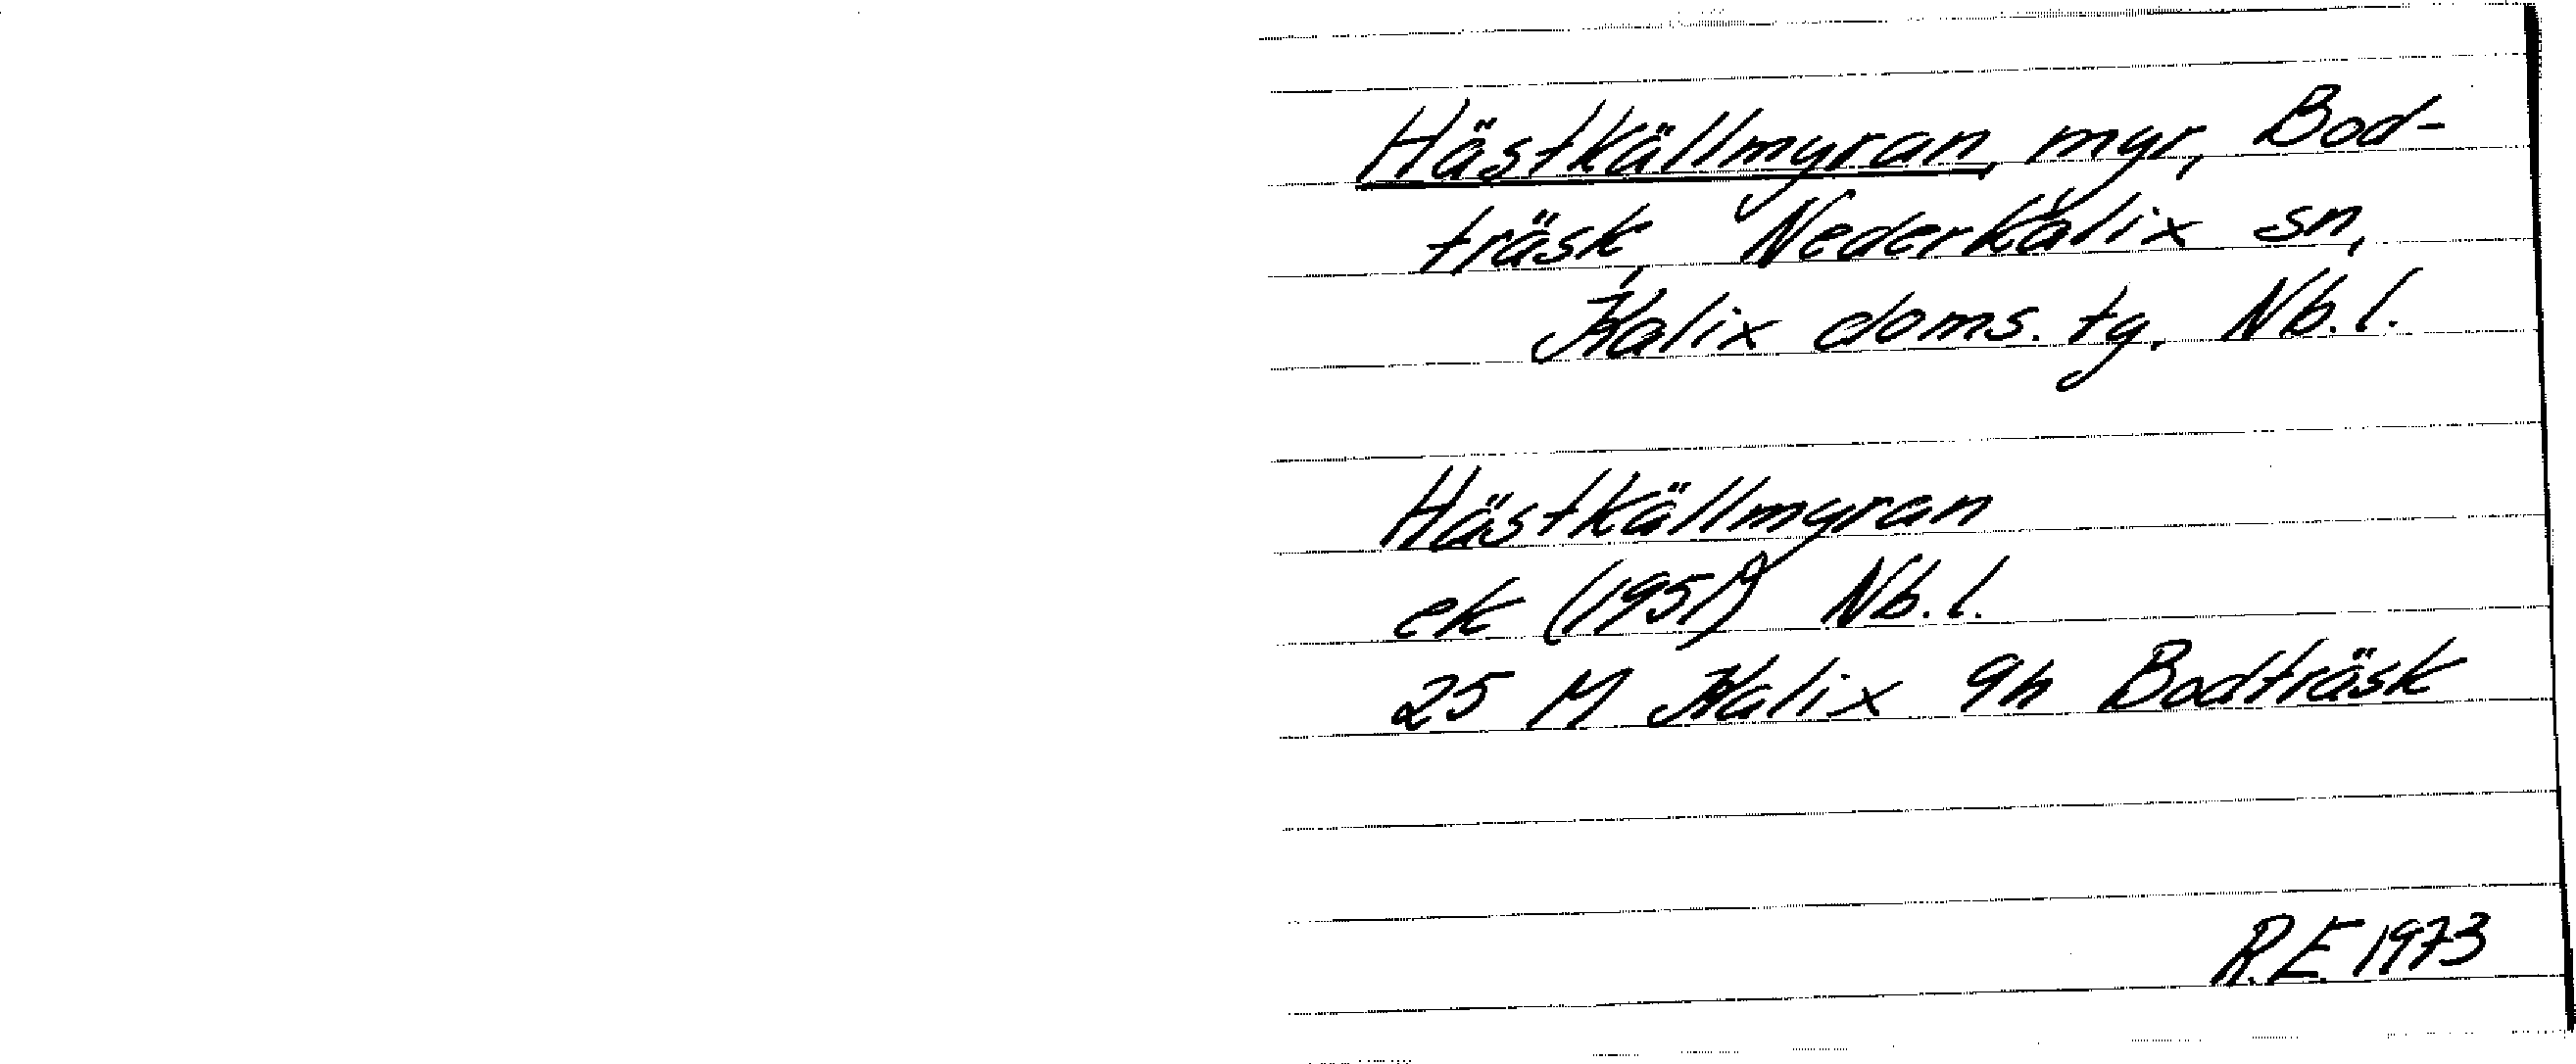 Hästkällmyran, myr, Bod-
träsk, Nederkalix sn,
Kalix doms. tg. Nb.l.
Hästkällmyran
ek (1951) Nb.l.
25 M Kalix 9h Bodträsk
R.E. 1973